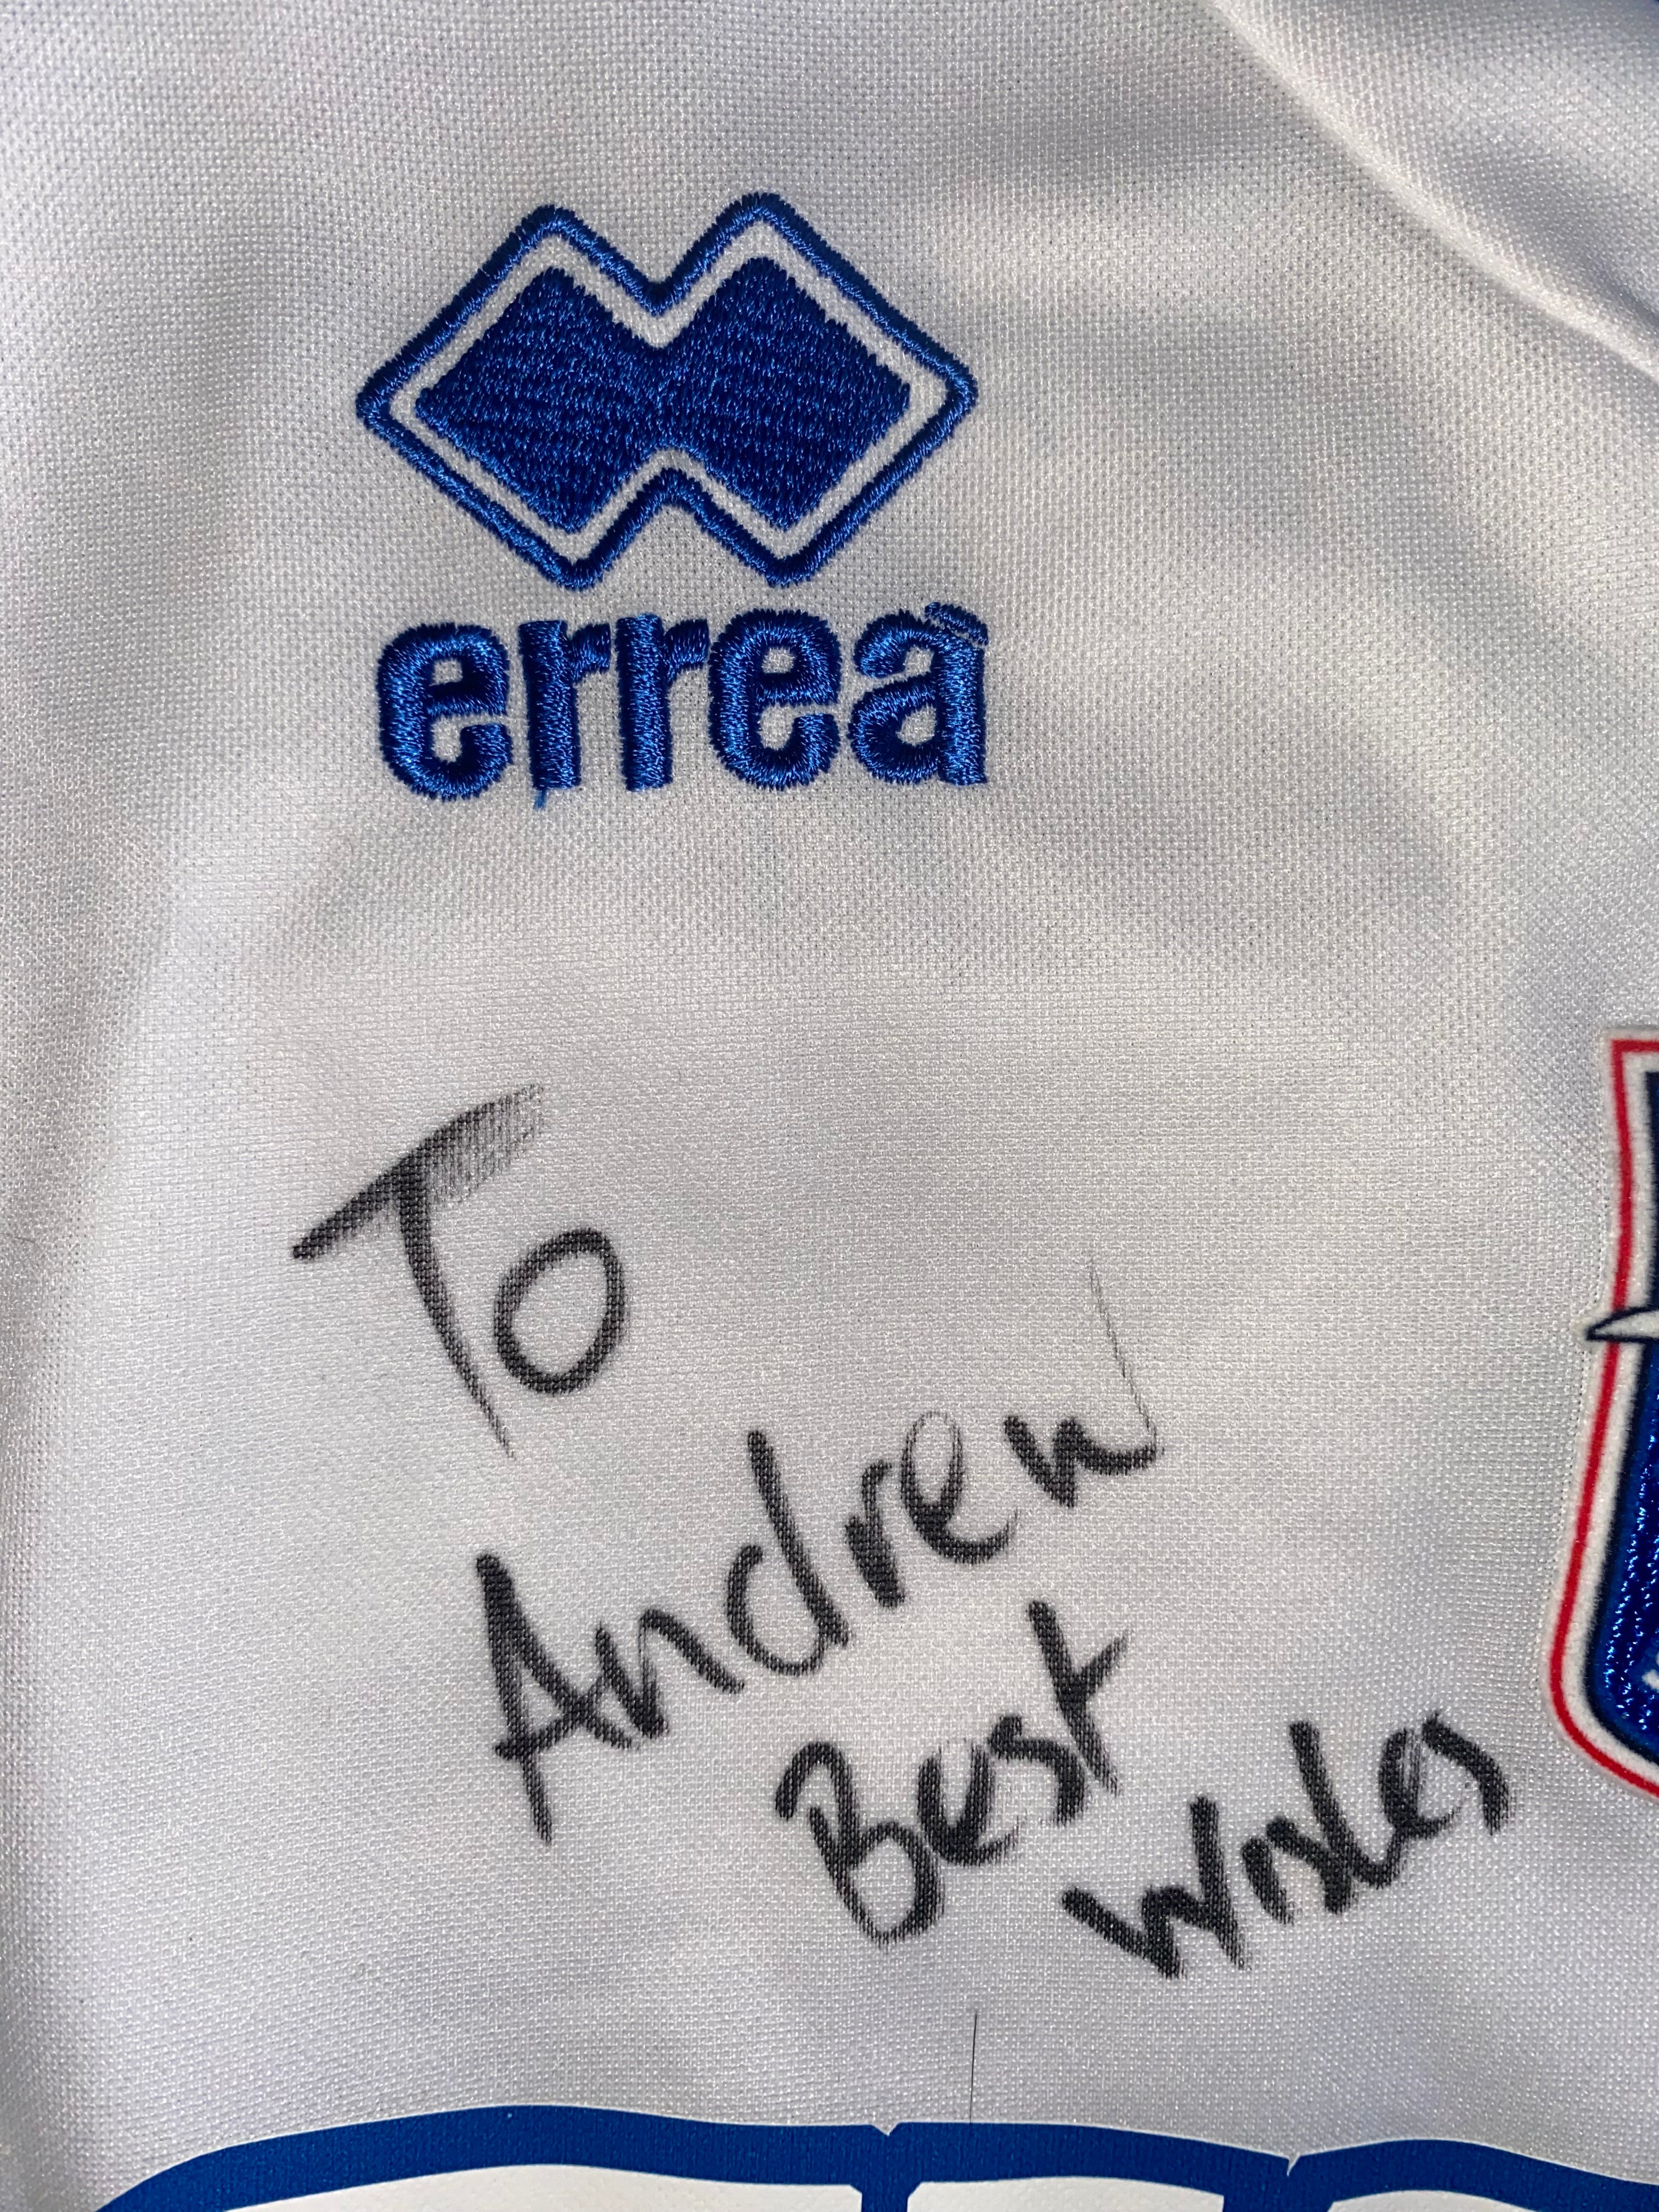 erreà
To
Andrew
Best
Wishes